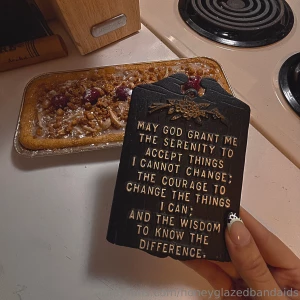 MAY GOD GRANT ME
THE SERENITY TO
ACCEPT THINGS
I CANNOT CHANGE;
THE COURAGE TO
CHANGE THE THINGS
I CAN;
AND THE WISDOM
TO KNOW THE
DIFFERENCE.